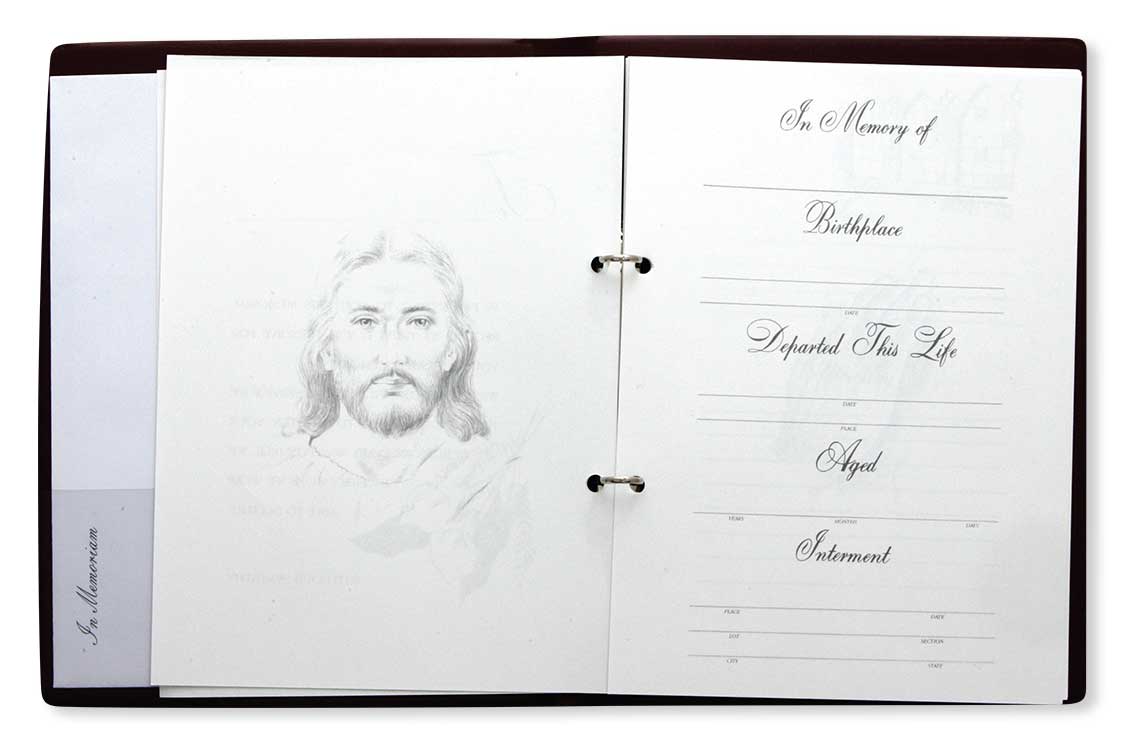 In Memoriam
In Memory of
Birthplace
DATE
Departed This Life
DATE
PLACE
Aged
YEARS MONTHS DAYS
Interment
PLACE DATE
LOT SECTION
CITY STATE